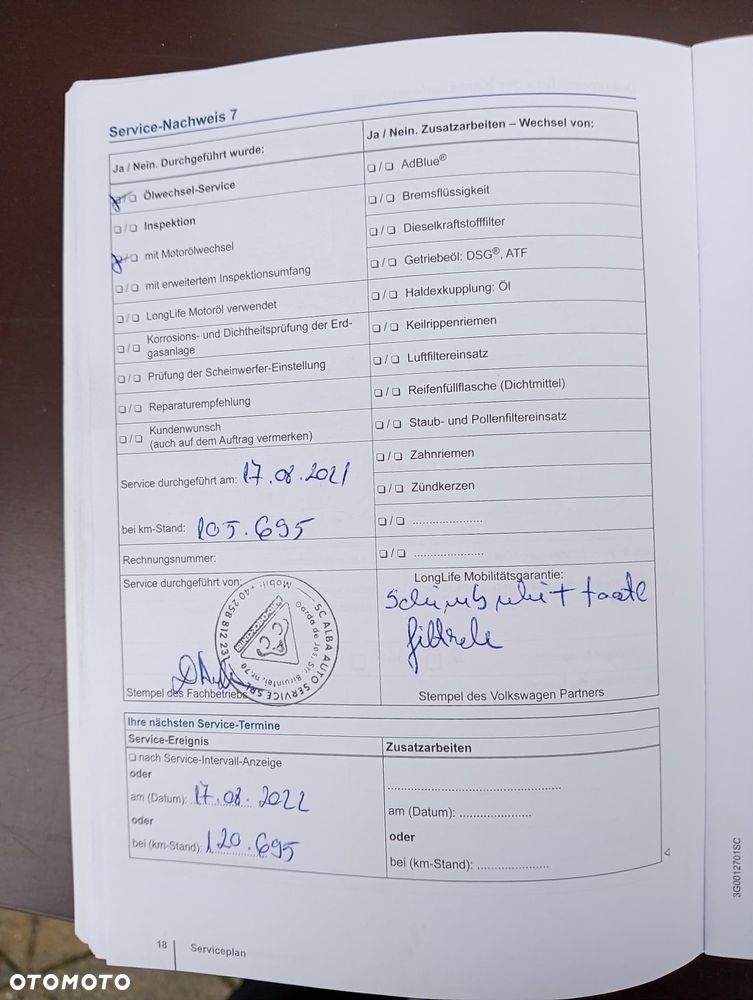 Service-Nachweis 7
Ja / Nein. Durchgeführt wurde:
Ölwechsel-Service
Inspektion
mit Motorölwechsel
mit erweitertem Inspektionsumfang
LongLife Motoröl verwendet
Korrosions- und Dichtheitsprüfung der Erd-
gasanlage
Prüfung der Scheinwerfer-Einstellung
Reparaturempfehlung
Kundenwunsch
(auch auf dem Auftrag vermerken)
Service durchgeführt am: 17.08.2021
bei km-Stand: 105.695
Rechnungsnummer:
Service durchgeführt von:
SC ALBA AUTO SERVICE SRL
Mobil: +40 258 812 231
Stempel des Fachbetriebs
Ja / Nein. Zusatzarbeiten – Wechsel von:
AdBlue®
Bremsflüssigkeit
Dieselkraftstofffilter
Getriebeöl: DSG®, ATF
Haldexkupplung: Öl
Keilrippenriemen
Luftfiltereinsatz
Reifenfüllflasche (Dichtmittel)
Staub- und Pollenfiltereinsatz
Zahnriemen
Zündkerzen
LongLife Mobilitätsgarantie:
Schimb ulei + toate
filtrele
Stempel des Volkswagen Partners
Ihre nächsten Service-Termine
Service-Ereignis
nach Service-Intervall-Anzeige
oder
am (Datum): 17.08.2022
oder
bei (km-Stand): 120.695
Zusatzarbeiten
am (Datum): ......................
oder
bei (km-Stand): ......................
3G0012701SC
18 Serviceplan
OTOMOTO